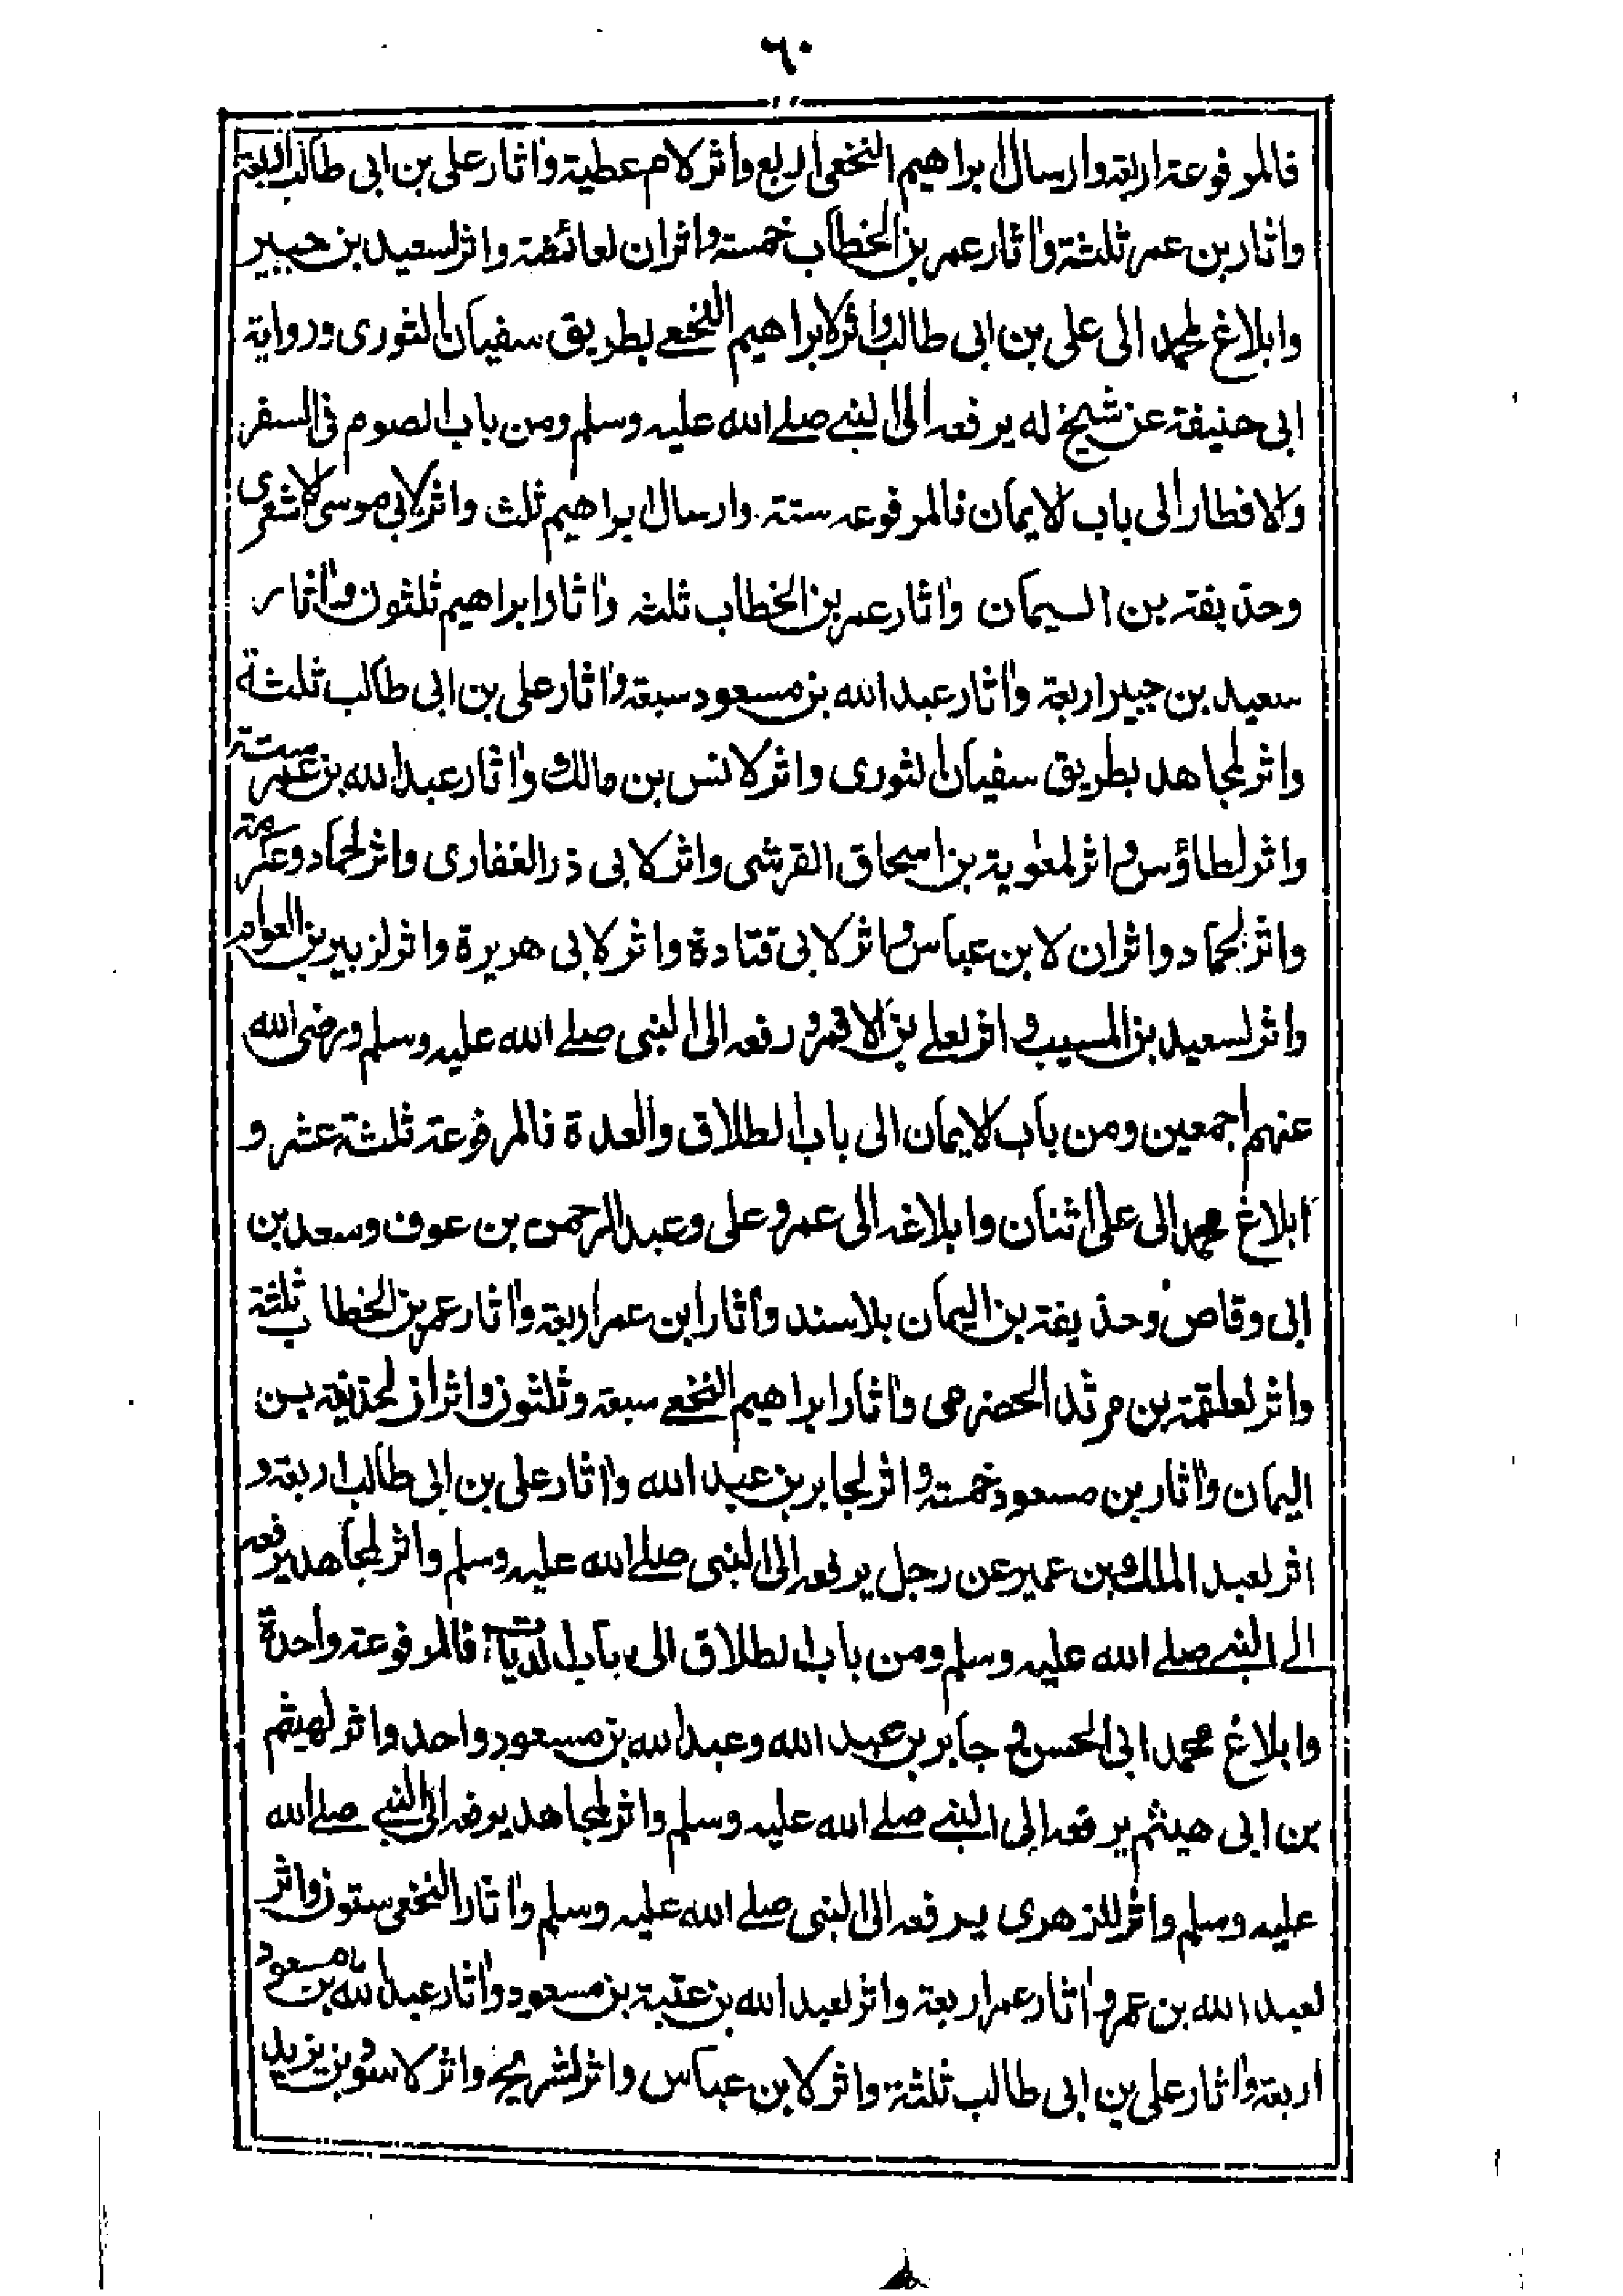 ٦٠
فالمرفوعة اربعة وارسال ابراهيم النخعى اربع واثر لام عطية واٰثار على بن ابى طالب اربعة
واٰثار بن عمر ثلثة واٰثار عمر بن الخطاب خمسة واثران لعائشة واثر لسعيد بن جبير
وابلاغ لمحمد الى على بن ابى طالب واثر لابراهيم النخعے بطريق سفيان الثورى ورواية
ابى حنيفة عن شيخ له يرفعه الى النبے صلے الله عليه وسلم ومن باب الصوم فى السفر
والافطار الى باب الايمان فالمرفوعه ستة وارسال ابراهيم ثلث واثر لابى موسى الاشعرى
وحذيفة بن اليمان واٰثار عمر بن الخطاب ثلثه واٰثار ابراهيم ثلثون واٰثار
سعيد بن جبير اربعة واٰثار عبد الله بن مسعود سبعة واٰثار على بن ابى طالب ثلثة
واثر لمجاهد بطريق سفيان الثورى واثر لانس بن مالك واٰثار عبد الله بن عمر ستة
واثر لطاؤس واثر لمعٰوية بن اسحاق القرشى واثر لابى ذر الغفارى واثر لحماد وعكرمة
واثر لحماد واثران لابن عباس واثر لابى قتادة واثر لابى هريرة واثر لزبير بن العوام
واثر لسعيد بن المسيب واثر لعلے بن الاقمر ورفعه الى النبى صلے الله عليه وسلم ورضى الله
عنهم اجمعين ومن باب الايمان الى باب الطلاق والعدة فالمرفوعة ثلثة عشر و
ابلاغ محمد الى على اثنان وابلاغه الى عمر وعلى وعبد الرحمن بن عوف وسعد بن
ابى وقاص وحذيفة بن اليمان بلا سند واٰثار ابن عمر اربعة واٰثار عمر بن الخطاب ثلثة
واثر لعلقمة بن مرثد الحضرمى واٰثار ابراهيم النخعے سبعة وثلثون واثران لحذيفة بن
اليمان واٰثار بن مسعود خمسة واثر لجابر بن عبد الله واٰثار على بن ابى طالب اربعة و
اثر لعبد الملك بن عمير عن رجل يرفعه الى النبى صلے الله عليه وسلم واثر لمجاهد يرفعه
الى النبے صلے الله عليه وسلم ومن باب الطلاق الى باب الديات فالمرفوعة واحدة
وابلاغ محمد ابى الحسن فى جابر بن عبد الله وعبد الله بن مسعود واحد واثر لهيثم
بن ابى هيثم يرفعه الى النبے صلے الله عليه وسلم واثر لمجاهد يرفعه الى النبے صلے الله
عليه وسلم واثر للزهرى يرفعه الى النبى صلے الله عليه وسلم واٰثار النخعى ستون واثر
لعبد الله بن عمر واٰثار عمر اربعة واثر لعبد الله بن عتبة بن مسعود واٰثار عبد الله بن مسعود
اربعة واٰثار على بن ابى طالب ثلثة واثر لابن عباس واثر لشريح واثر لاسود بن يزيد